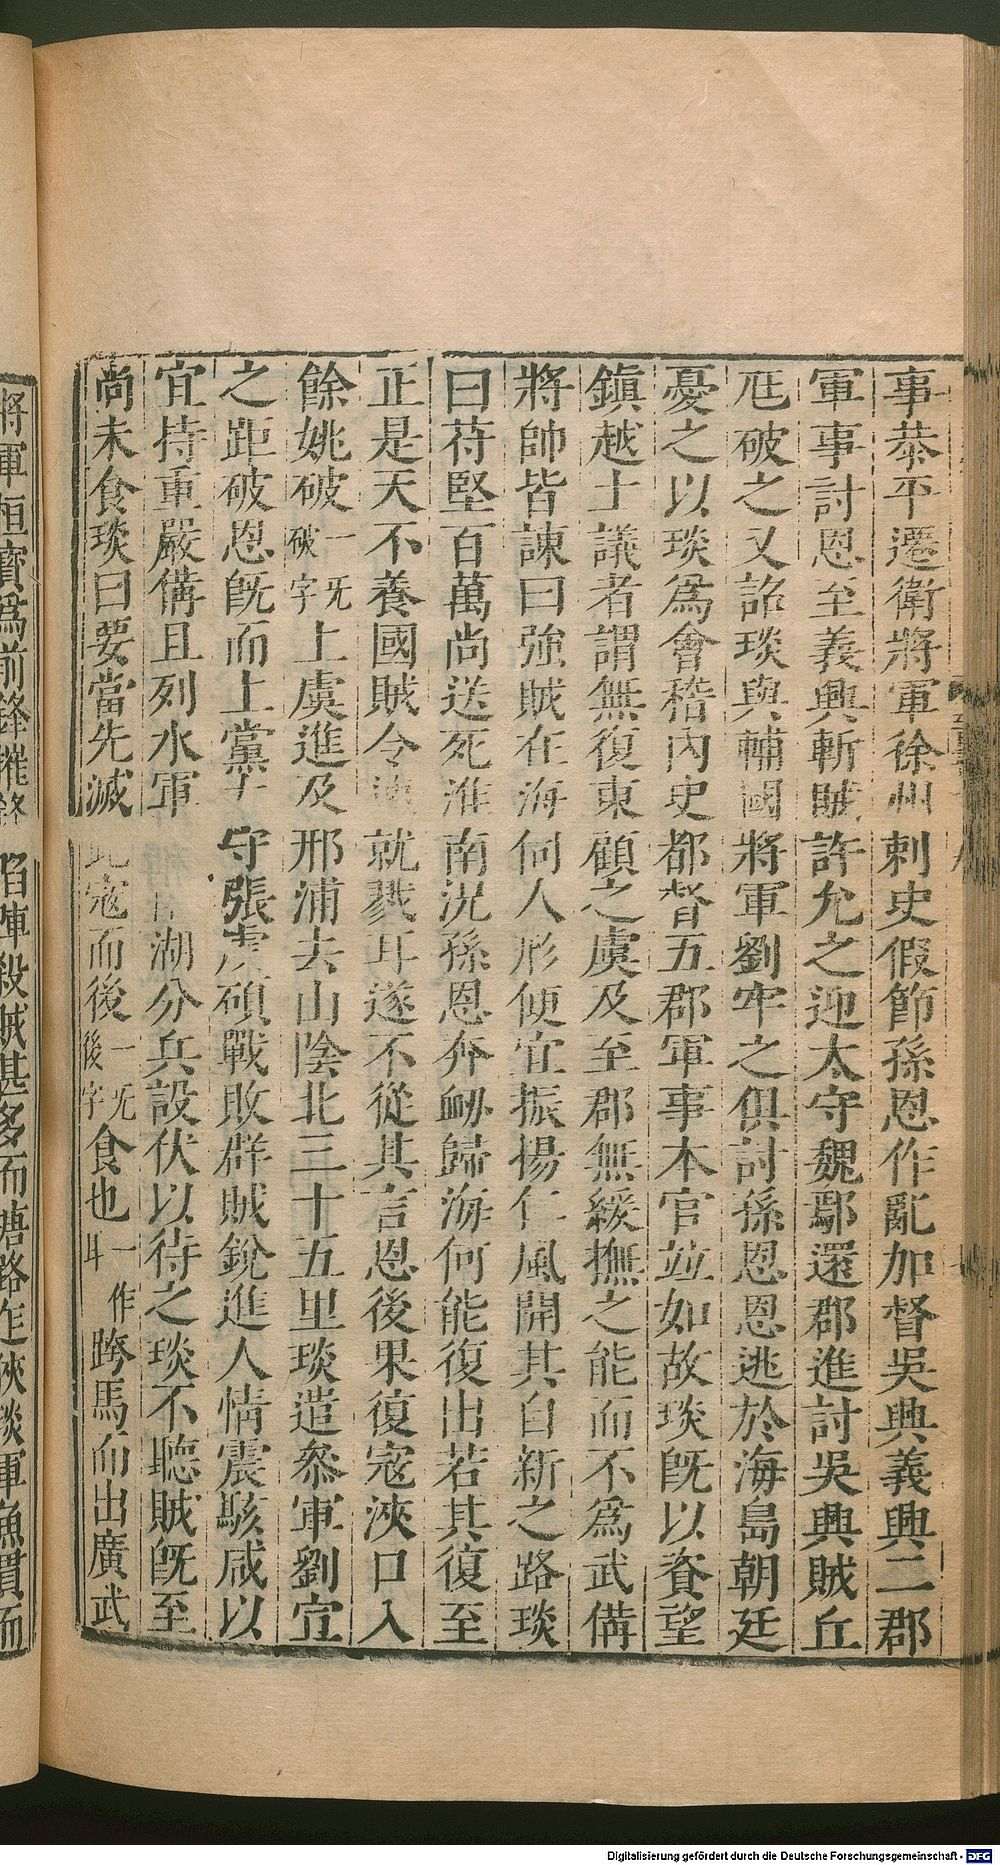 事恭平遷衛將軍徐州刺史假節孫恩作亂加督吳興義興二郡
軍事討恩至義興斬賊許允之迎太守魏鄢還郡進討吳興賊丘
尫破之又詔琰與輔國將軍劉牢之俱討孫恩恩逃於海島朝廷
憂之以琰為會稽內史都督五郡軍事本官並如故琰旣以資望
鎮越土議者謂無復東顧之虞及至郡無綏撫之能而不為武備
將帥皆諫曰強賊在海伺人形便宜振揚仁風開其自新之路琰
曰苻堅百萬尚送死淮南況孫恩奔衂歸海何能復出若其復至
正是天不養國賊令速就戮耳遂不從其言恩後果復寇浹口入
餘姚破一旡破字上虞進及邢浦去山陰北三十五里琰遣叅軍劉宣
之距破恩旣而上黨太守張虔碩戰敗群賊銳進人情震駭咸以
宜持重嚴備且列水軍 湖分兵設伏以待之琰不聽賊旣至
尚未食琰曰要當先滅此寇而後一旡後字食也一作耳跨馬而出廣武
將軍桓寶為前鋒摧鋒陷陣殺賊甚多而塘路迮狹琰軍魚貫而
Digitalisierung gefördert durch die Deutsche Forschungsgemeinschaft - DFG